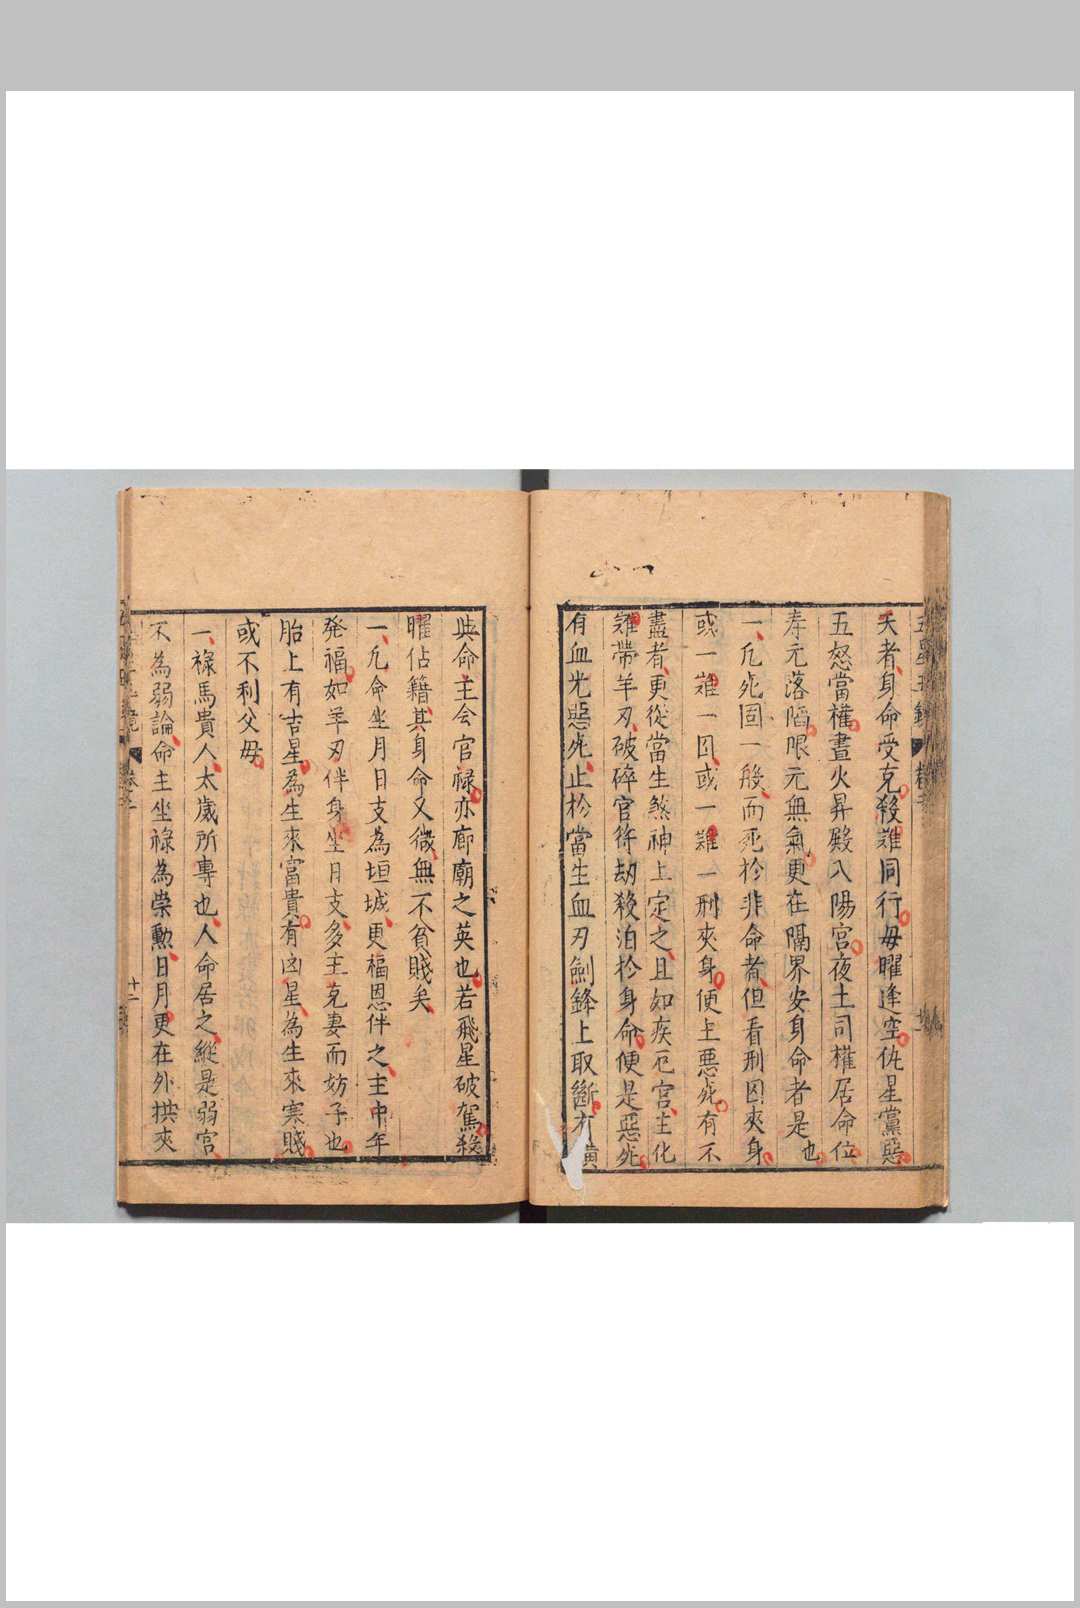 夭者身命受克殺難同行毋曜逢空仇星黨惡
五怒當權晝火昇殿入陽宮夜土司權居命位
寿元落陷限元無氣更在隔界安身命者是也
一凢死固一般而死於非命者但看刑囚夾身
或一難一囚或一難一刑夾身便主惡死有不
盡者更從當生煞神上定之且如疾厄宮主化
難帶羊刃破碎官符劫殺泊於身命便是惡死
有血光惡死止於當生血刃劍鋒上取斷有橫
與命主会官禄亦廊廟之英也若飛星破駕殺
曜佔籍其身命又微無不貧賤矣
一凢命坐月日支為垣城更福恩伴之主中年
発福如羊刃伴身坐月支多主克妻而妨子也
胎上有吉星為生來富貴有凶星為生來寒賤
或不利父毋
一禄馬貴人太歲所專也人命居之縱是弱宮
不為弱論命主坐祿為榮勲日月更在外拱夾
十二